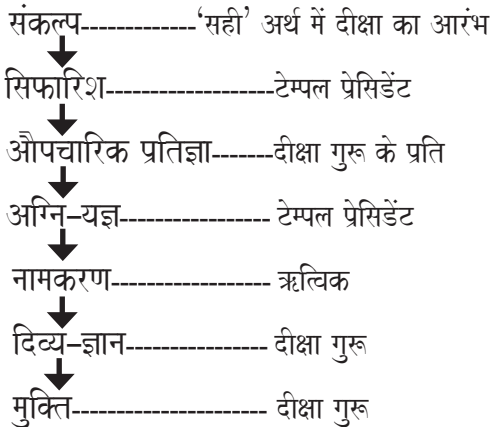 संकल्प-------------‘सही’ अर्थ में दीक्षा का आरंभ
सिफारिश-------------------टेम्पल प्रेसिडेंट
औपचारिक प्रतिज्ञा-------दीक्षा गुरू के प्रति
अग्नि-यज्ञ----------------- टेम्पल प्रेसिडेंट
नामकरण------------------ ऋत्विक
दिव्य-ज्ञान---------------- दीक्षा गुरू
मुक्ति---------------------- दीक्षा गुरू